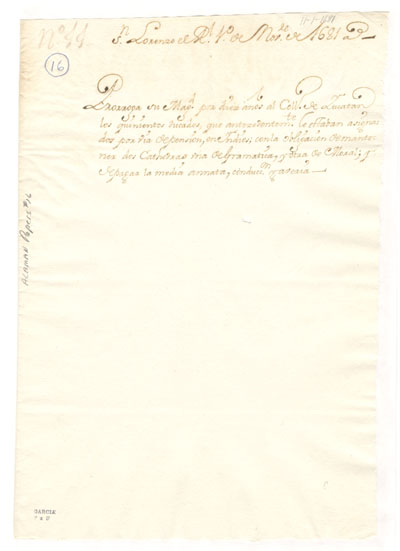 Nº 55.
Sn Lorenzo el Rl, 1º de Nore de 1681 as
11-1-1681
16
Prorroga su Magd por diez años al Collº de Yucatan
los quinientos ducados, que antecedentemte le estaban asigna-
dos por via de pension, en Indias, con la obligacion de mante-
ner dos Cathedras una de Gramatica, y otra de Moral; y
de pagar la media annata, y conducon
GARCIA